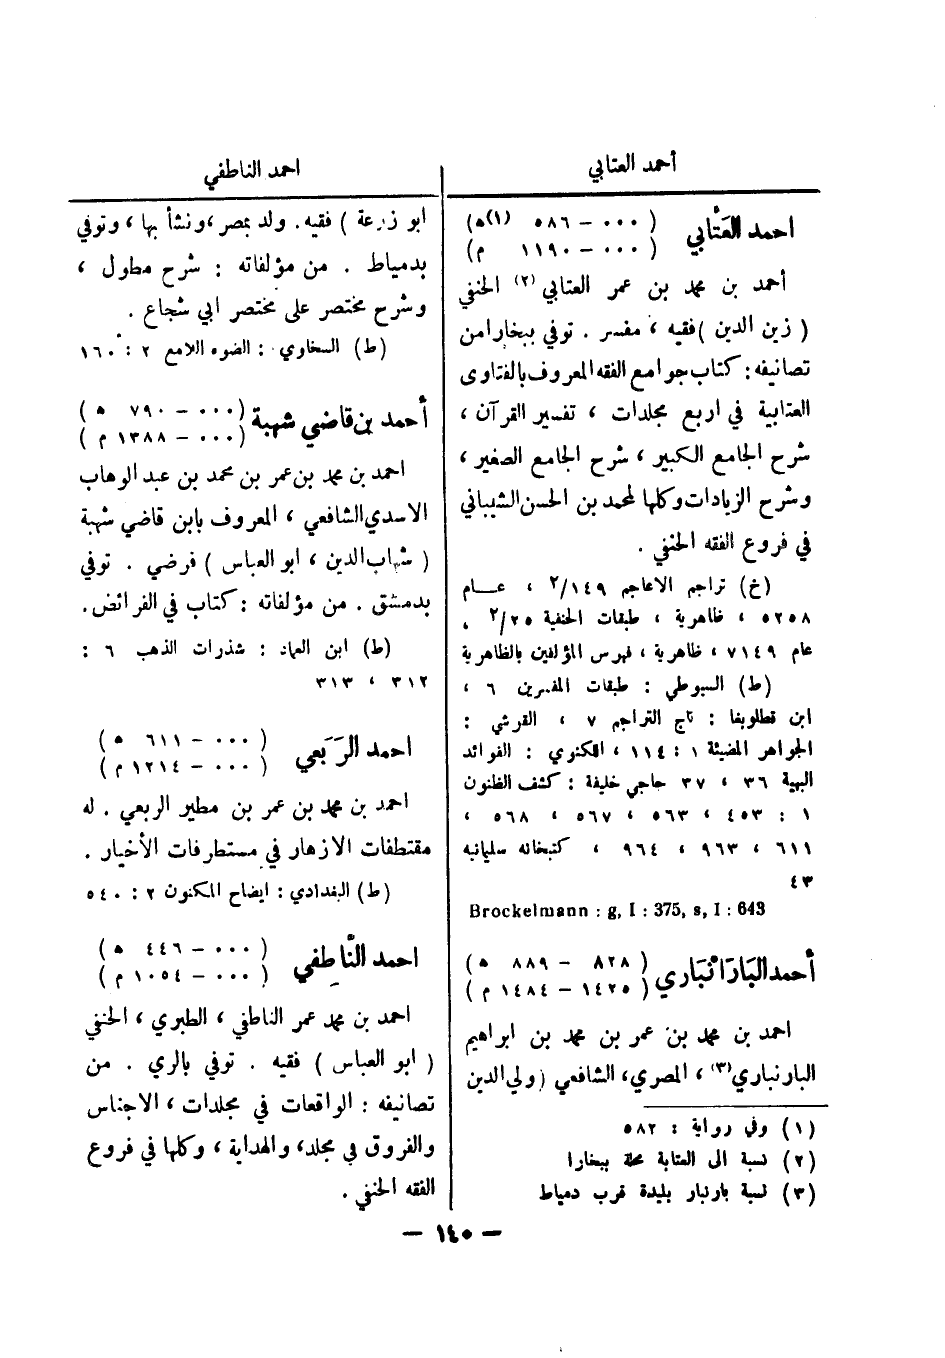 أحمد العتابي
احمد العَتْابي
( ٠٠٠ – ٥٨٦ (١)ه )
( ٠٠٠ – ١١٩٠ م )
أحمد بن محمد بن عمر العتابي (٢) الحنفي
( زين الدين ) فقيه ، مفسر . توفي ببخارا من
تصانيفه : كتاب جوامع الفقه المعروف بالفتاوى
العتابية في اربع مجلدات ، تفسير القرآن ،
شرح الجامع الكبير ، شرح الجامع الصغير ،
وشرح الزيادات وكلها لمحمد بن الحسن الشيباني
في فروع الفقه الحنفي .
(خ) تراجم الاعاجم ٢/١٤٩ ، عام
٥٢٥٨ ، ظاهرية ، طبقات الحنفية ٢/٢٥ ،
عام ٧١٤٩ ، ظاهرية ، فهرس المؤلفين بالظاهرية
(ط) السيوطي : طبقات المفسرين ٦ ،
ابن قطلوبغا : تاج التراجم ٧ ، القرشي :
الجواهر المضيئة ١ : ١١٤ ، اللكنوي : الفوائد
البهية ٣٦ ، ٣٧ حاجي خليفة : كشف الظنون
١ : ٤٥٣ ، ٥٦٣ ، ٥٦٧ ، ٥٦٨ ،
٦١١ ، ٩٦٣ ، ٩٦٤ ، كتبخانه سليمانيه
٤٣
Brockelmann : g, I : 375, s, I : 643
أحمد البَارَانْبَاري
( ٨٢٨ – ٨٨٩ ه )
( ١٤٢٥ – ١٤٨٤ م )
احمد بن محمد بن عمر بن محمد بن ابراهيم
البارنباري (٣) ، المصري ، الشافعي ( ولي الدين
(١) وفي رواية : ٥٨٢
(٢) نسبة الى العتابة محلة ببخارا
(٣) نسبة بارنبار بليدة قرب دمياط
احمد الناطفي
ابو زرعة ) فقيه . ولد بمصر ، ونشأ بها ، وتوفي
بدمياط . من مؤلفاته : شرح مطول ،
وشرح مختصر على مختصر ابي شجاع .
(ط) السخاوي : الضوء اللامع ٢ : ١٦٠
أحمد بن قاضي شهبة
( ٠٠٠ – ٧٩٠ ه )
( ٠٠٠ – ١٣٨٨ م )
احمد بن محمد بن عمر بن محمد بن عبد الوهاب
الاسدي الشافعي ، المعروف بابن قاضي شهبة
( شهاب الدين ، ابو العباس ) فرضي . توفي
بدمشق . من مؤلفاته : كتاب في الفرائض .
(ط) ابن العماد : شذرات الذهب ٦ :
٣١٢ ، ٣١٣
احمد الرَبَعي
( ٠٠٠ – ٦١١ ه )
( ٠٠٠ – ١٢١٤ م )
احمد بن محمد بن عمر بن مطير الربعي . له
مقتطفات الازهار في مستطرفات الأخبار .
(ط) البغدادي : ايضاح المكنون ٢ : ٥٤٠
احمد النّاطِفي
( ٠٠٠ – ٤٤٦ ه )
( ٠٠٠ – ١٠٥٤ م )
احمد بن محمد عمر الناطفي ، الطبري ، الحنفي
( ابو العباس ) فقيه . توفي بالري . من
تصانيفه : الواقعات في مجلدات ، الاجناس
والفروق في مجلد ، والهداية ، وكلها في فروع
الفقه الحنفي .
– ١٤٠ –